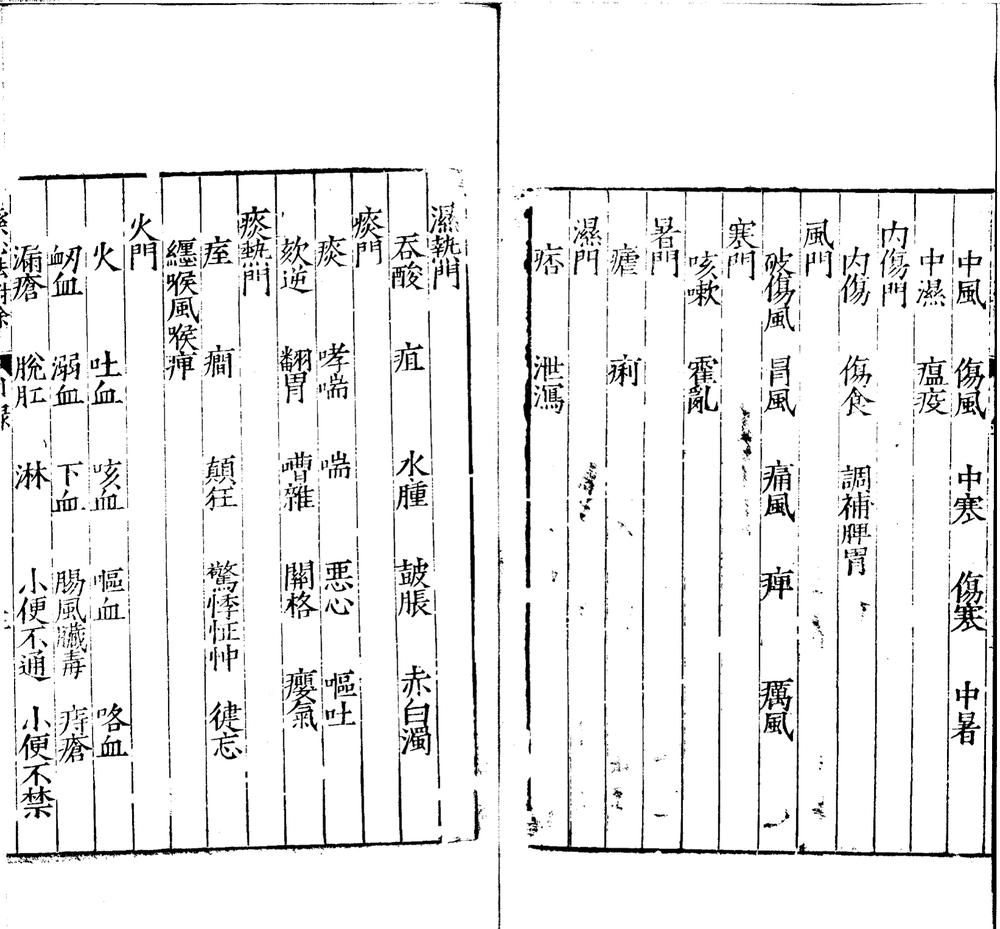 中風 傷風 中寒 傷寒 中暑
中濕 瘟疫
內傷門
內傷 傷食 調補脾胃
風門
破傷風 冒風 痛風 痺 厲風
寒門
咳嗽 霍亂
暑門
瘧 痢
濕門
痞 泄瀉
濕熱門
吞酸 疸 水腫 鼓脹 赤白濁
痰門
痰 哮喘 喘 惡心 嘔吐
欬逆 翻胃 嘈雜 關格 癭氣
痰熱門
痓 癎 顛狂 驚悸怔忡 健忘
纏喉風喉痺
火門
火 吐血 咳血 嘔血 咯血
衂血 溺血 下血 腸風臟毒 痔瘡
漏瘡 脫肛 淋 小便不通 小便不禁